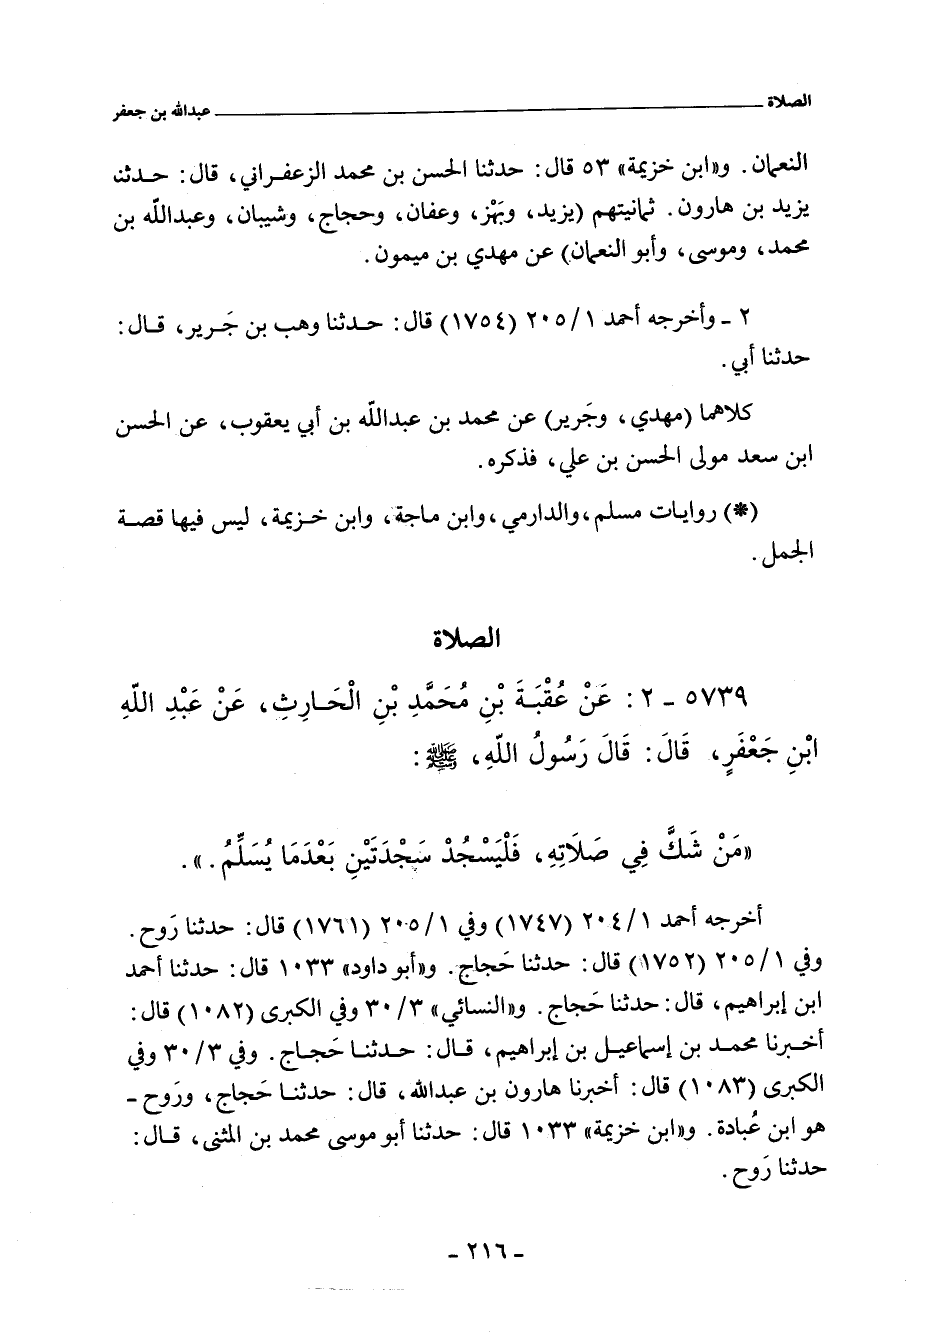 الصلاة ــــــ عبدالله بن جعفر
النعمان. و«ابن خزيمة» ٥٣ قال: حدثنا الحسن بن محمد الزعفراني، قال: حدثنا
يزيد بن هارون. ثمانيتهم (يزيد، وبَهْز، وعفان، وحجاج، وشيبان، وعبدالله بن
محمد، وموسى، وأبو النعمان) عن مهدي بن ميمون.
٢ ـ وأخرجه أحمد ٢٠٥/١ (١٧٥٤) قال: حدثنا وهب بن جَرير، قال:
حدثنا أبي.
كلاهما (مهدي، وجَرير) عن محمد بن عبدالله بن أبي يعقوب، عن الحسن
ابن سعد مولى الحسن بن علي، فذكره.
(*) روايات مسلم، والدارمي، وابن ماجة، وابن خزيمة، ليس فيها قصة
الجمل.
الصلاة
٥٧٣٩ ـ ٢: عَنْ عُقْبَةَ بْنِ مُحَمَّدِ بْنِ الْحَارِثِ، عَنْ عَبْدِ اللّهِ
ابْنِ جَعْفَرٍ، قَالَ: قَالَ رَسُولُ اللّهِ، ﷺ:
«مَنْ شَكَّ فِي صَلَاتِهِ، فَلْيَسْجُدْ سَجْدَتَيْنِ بَعْدَمَا يُسَلِّمُ.».
أخرجه أحمد ٢٠٤/١ (١٧٤٧) وفي ٢٠٥/١ (١٧٦١) قال: حدثنا رَوح.
وفي ٢٠٥/١ (١٧٥٢) قال: حدثنا حَجاج. و«أبو داود» ١٠٣٣ قال: حدثنا أحمد
ابن إبراهيم، قال: حدثنا حَجاج. و«النسائي» ٣٠/٣ وفي الكبرى (١٠٨٢) قال:
أخبرنا محمد بن إسماعيل بن إبراهيم، قال: حدثنا حَجاج. وفي ٣٠/٣ وفي
الكبرى (١٠٨٣) قال: أخبرنا هارون بن عبدالله، قال: حدثنا حَجاج، ورَوح -
هو ابن عُبادة. و«ابن خزيمة» ١٠٣٣ قال: حدثنا أبو موسى محمد بن المثنى، قال:
حدثنا رَوح.
- ٢١٦ -